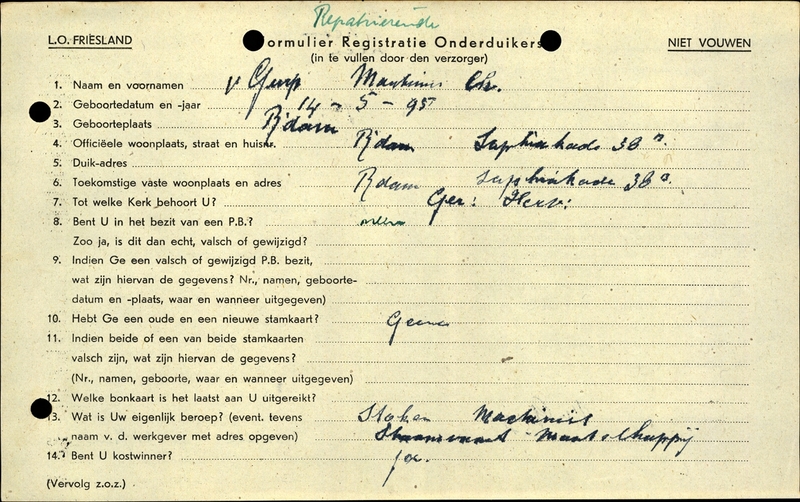 Repatrieerende
L.O. FRIESLAND
Formulier Registratie Onderduikers
NIET VOUWEN
(in te vullen door den verzorger)
1. Naam en voornamen v Gurp Martinus Ch.
2. Geboortedatum en -jaar 14 - 5 - 95
3. Geboorteplaats R'dam
4. Officiëele woonplaats, straat en huisnr. R'dam 36 a.
5. Duik-adres
6. Toekomstige vaste woonplaats en adres R'dam 36 a.
7. Tot welke Kerk behoort U? Ger: Herv:
8. Bent U in het bezit van een P.B.?
Zoo ja, is dit dan echt, valsch of gewijzigd?
9. Indien Ge een valsch of gewijzigd P.B. bezit,
wat zijn hiervan de gegevens? Nr., namen, geboorte-
datum en -plaats, waar en wanneer uitgegeven)
10. Hebt Ge een oude en een nieuwe stamkaart? Geene
11. Indien beide of een van beide stamkaarten
valsch zijn, wat zijn hiervan de gegevens?
(Nr., namen, geboorte, waar en wanneer uitgegeven)
12. Welke bonkaart is het laatst aan U uitgereikt?
13. Wat is Uw eigenlijk beroep? (event. tevens Stoker Machinist
naam v. d. werkgever met adres opgeven) Maatschappij
14. Bent U kostwinner? ja.
(Vervolg z.o.z.)